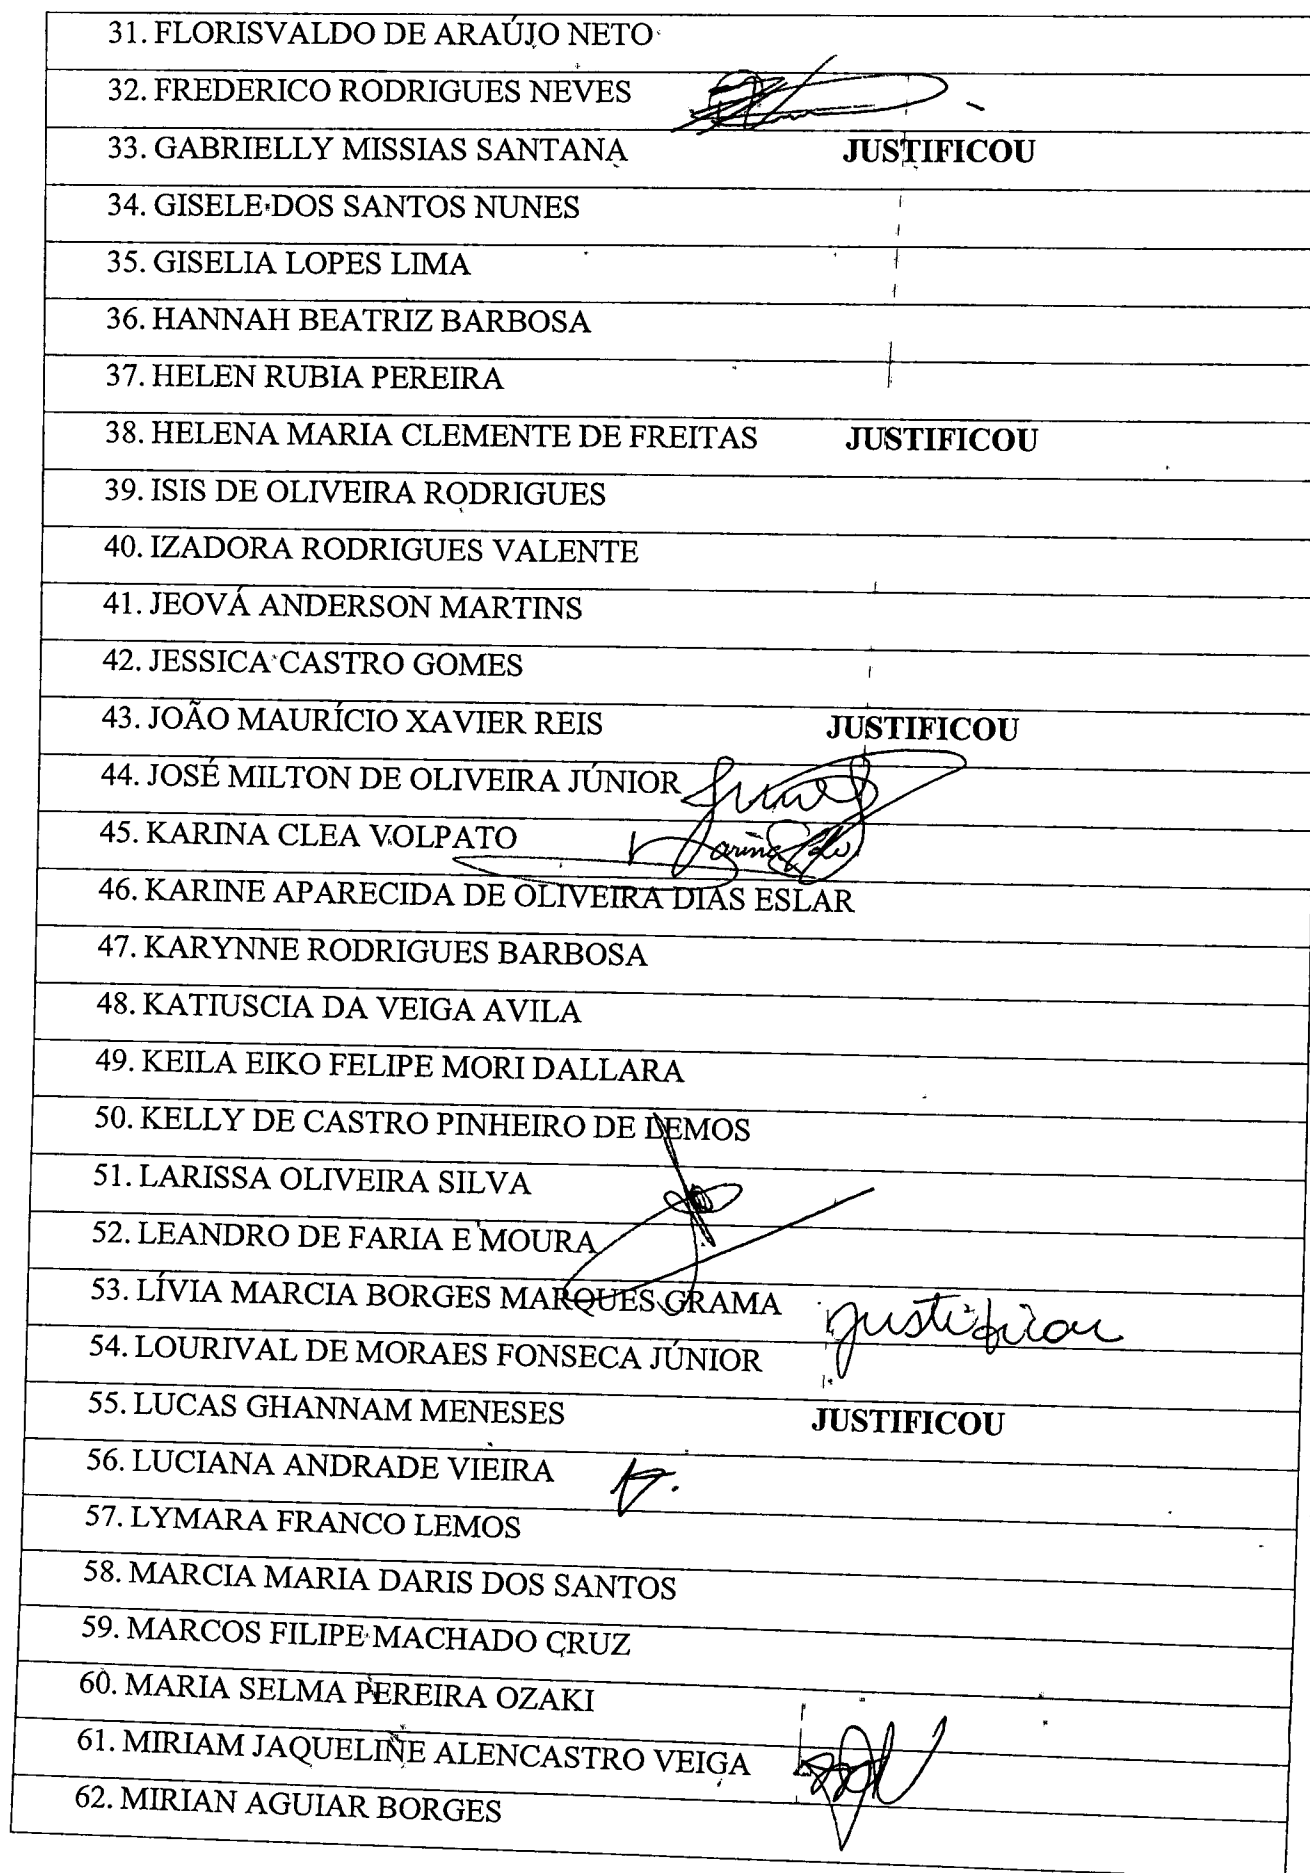 31. FLORISVALDO DE ARAÚJO NETO
32. FREDERICO RODRIGUES NEVES
33. GABRIELLY MISSIAS SANTANA JUSTIFICOU
34. GISELE DOS SANTOS NUNES
35. GISELIA LOPES LIMA
36. HANNAH BEATRIZ BARBOSA
37. HELEN RUBIA PEREIRA
38. HELENA MARIA CLEMENTE DE FREITAS JUSTIFICOU
39. ISIS DE OLIVEIRA RODRIGUES
40. IZADORA RODRIGUES VALENTE
41. JEOVÁ ANDERSON MARTINS
42. JESSICA CASTRO GOMES
43. JOÃO MAURÍCIO XAVIER REIS JUSTIFICOU
44. JOSÉ MILTON DE OLIVEIRA JÚNIOR
45. KARINA CLEA VOLPATO
46. KARINE APARECIDA DE OLIVEIRA DIAS ESLAR
47. KARYNNE RODRIGUES BARBOSA
48. KATIUSCIA DA VEIGA AVILA
49. KEILA EIKO FELIPE MORI DALLARA
50. KELLY DE CASTRO PINHEIRO DE LEMOS
51. LARISSA OLIVEIRA SILVA
52. LEANDRO DE FARIA E MOURA
53. LÍVIA MARCIA BORGES MARQUES GRAMA justificou
54. LOURIVAL DE MORAES FONSECA JÚNIOR
55. LUCAS GHANNAM MENESES JUSTIFICOU
56. LUCIANA ANDRADE VIEIRA
57. LYMARA FRANCO LEMOS
58. MARCIA MARIA DARIS DOS SANTOS
59. MARCOS FILIPE MACHADO CRUZ
60. MARIA SELMA PEREIRA OZAKI
61. MIRIAM JAQUELINE ALENCASTRO VEIGA
62. MIRIAN AGUIAR BORGES